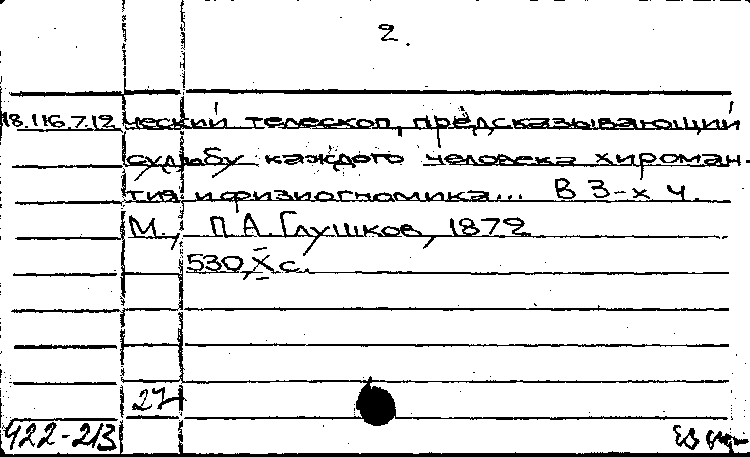 2.
18.116.7.12 ческий телескоп, предсказывающий
судьбу каждого человека хироман-
тия и физиогномика... В 3-х ч.
М., П.А. Глушков, 1872
530, X с.
27
422-213